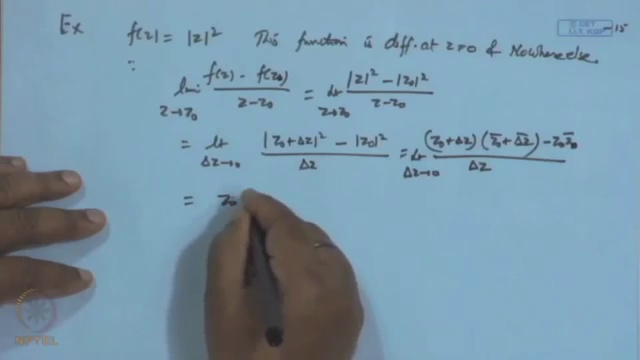 Ex f(z) = |z|² This function is diff. at z=0 & Nowhere else.
∴ lim z→z₀ (f(z) - f(z₀))/(z - z₀) = lt z→z₀ (|z|² - |z₀|²)/(z - z₀)
= lt Δz→0 (|z₀ + Δz|² - |z₀|²)/Δz = lt Δz→0 ((z₀ + Δz)(z̄₀ + Δ̄z̄) - z₀z̄₀)/Δz
= z₀
NPTEL